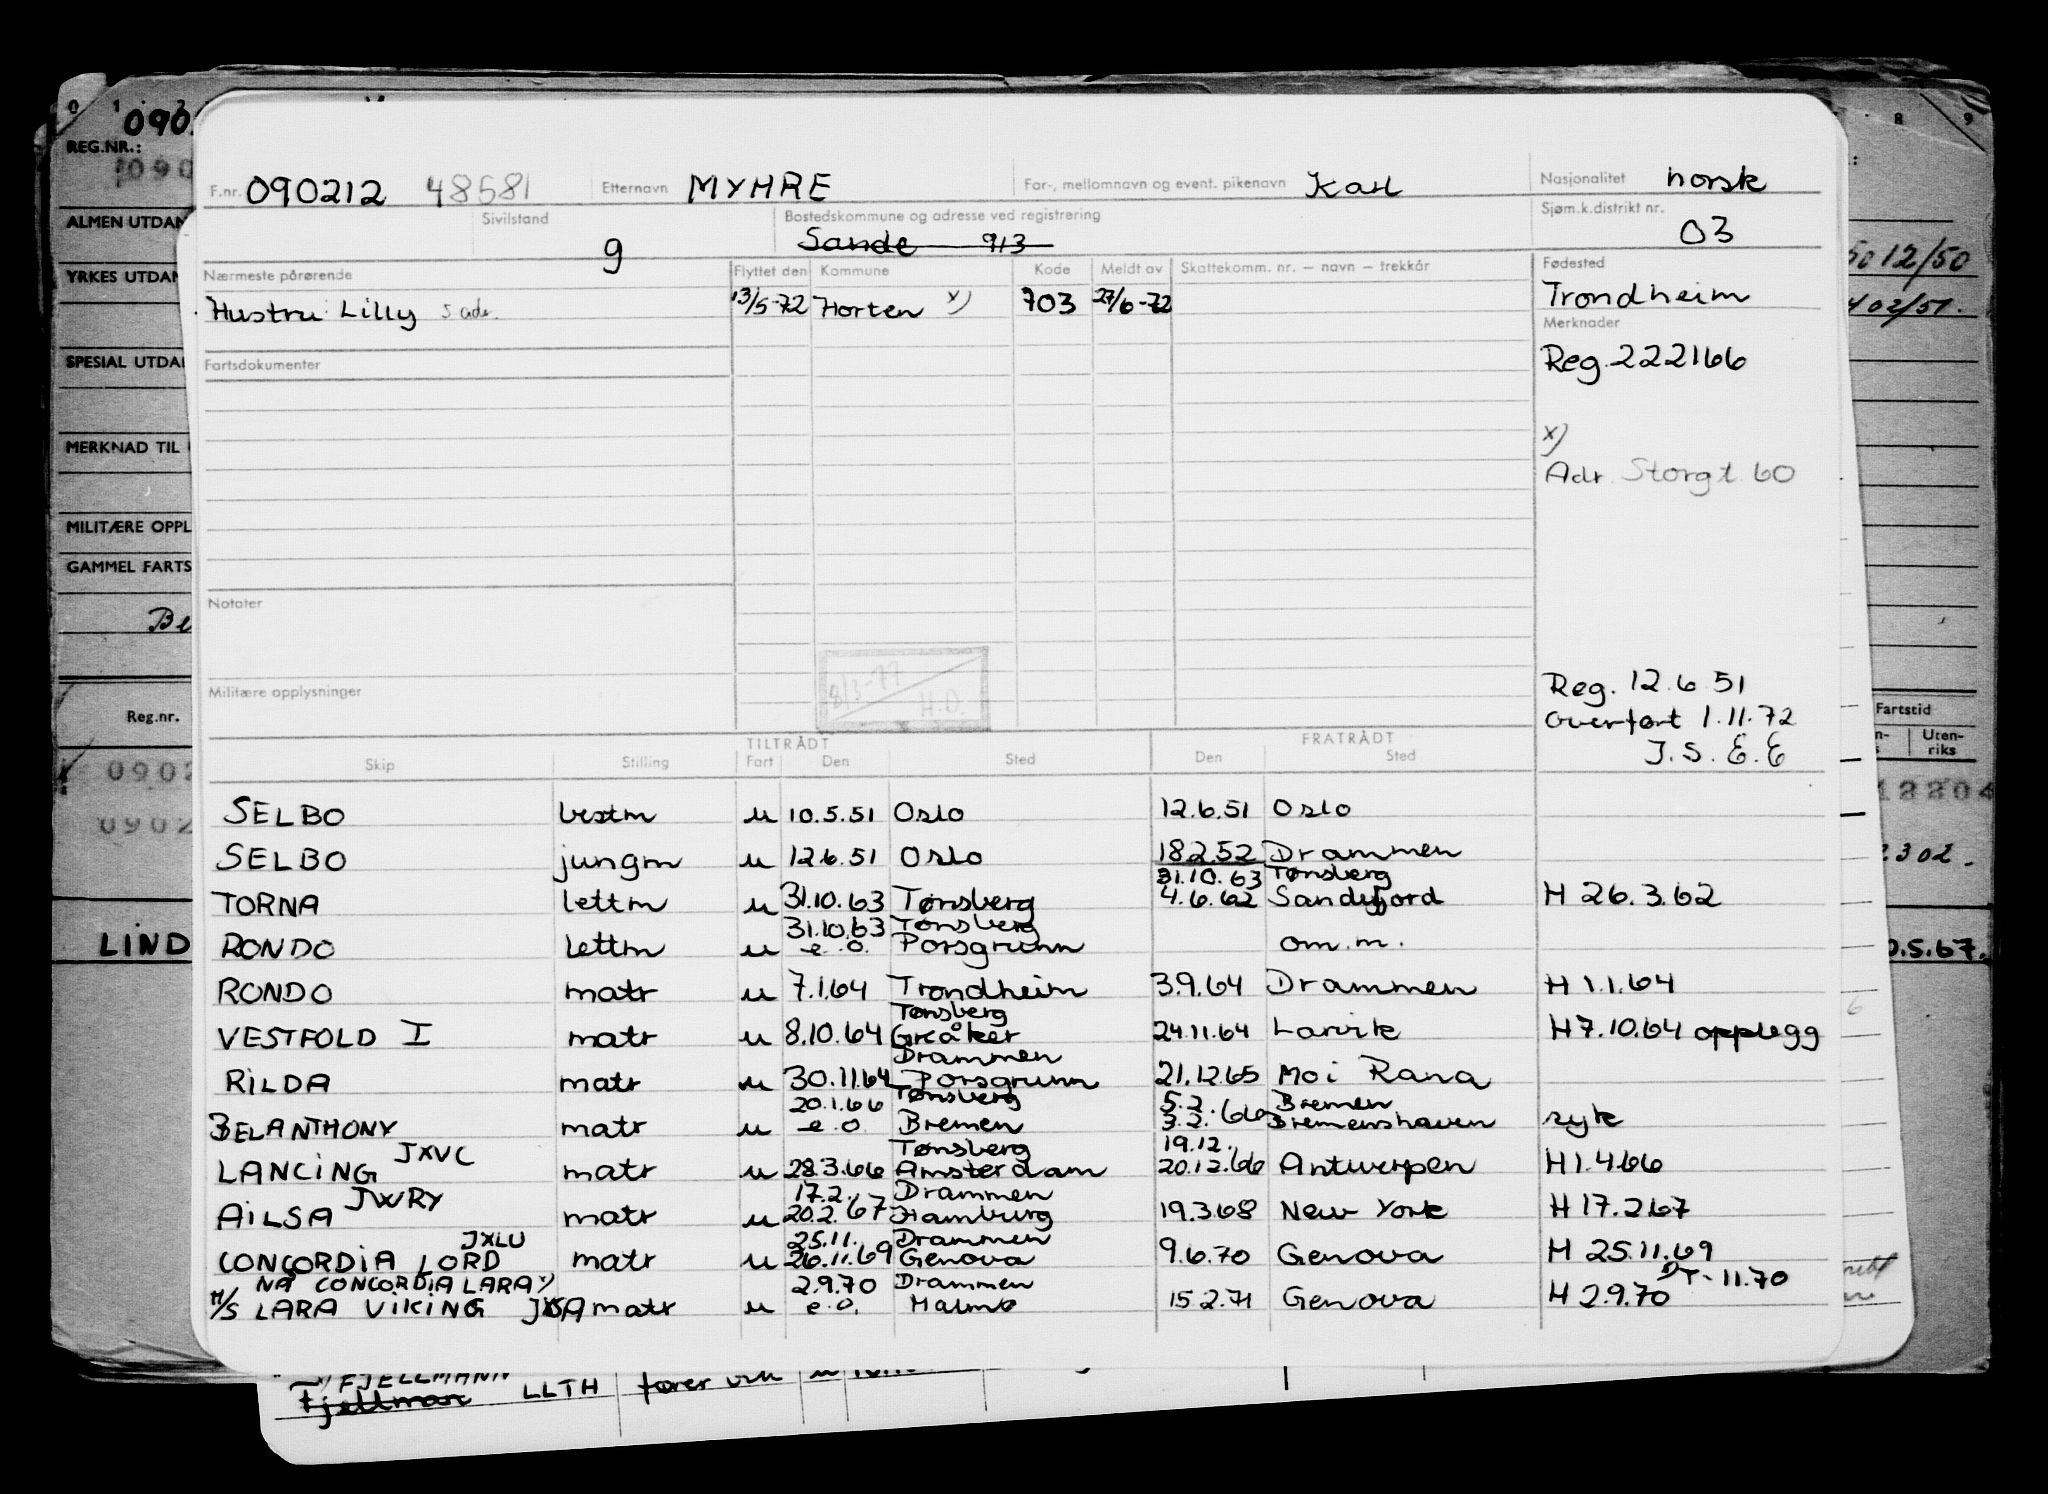 F.nr. 090212 48581 Etternavn MYHRE For-, mellomnavn og event. pikenavn Karl Nasjonalitet norsk
Sivilstand g Bostedskommune og adresse ved registrering Sande 913 Sjøm.k.distrikt nr. 03
Nærmeste pårørende Flyttet den Kommune Kode Meldt av Skattekomm. nr. – navn – trekkår Fødested
Hustru Lilly s adr. 13/5-72 Horten x) 703 27/6-72 Trondheim
Merknader
Fartsdokumenter Reg. 222166
x)
Adr. Storgt. 60
Notater
8/3-77 H.O.
Militære opplysninger
Reg. 12.6.51
Overført 1.11.72
J.S. E.E
TILTRÅDT FRATRÅDT
Skip Stilling Fart Den Sted Den Sted
SELBO bestm u 10.5.51 Oslo 12.6.51 Oslo
SELBO jungm u 12.6.51 Oslo 18.2.52 Drammen
31.10.63 Tønsberg
TORNA lettm u 31.10.63 Tønsberg 4.6.62 Sandefjord H 26.3.62
31.10.63 Tønsberg
RONDO lettm u e.o. Porsgrunn om.m.
RONDO matr u 7.1.64 Trondheim 3.9.64 Drammen H 1.1.64
Tønsberg
VESTFOLD I matr u 8.10.64 Greåker 24.11.64 Larvik H 7.10.64 opplegg
Drammen
RILDA matr u 30.11.64 Porsgrunn 21.12.65 Moi Rana
20.1.66 Tønsberg 5.2. Bremen
BELANTHONY matr u e.o. Bremen 3.2.66 Bremenshaven syk
JXVC Tønsberg 19.12.
LANCING matr u 28.3.66 Amsterdam 20.12.66 Antwerpen H 1.4.66
JWRY 17.2. Drammen
AILSA matr u 20.2.67 Hamburg 19.3.68 New York H 17.2.67
JXLU 25.11. Drammen
CONCORDIA LORD matr u 26.11.69 Genova 9.6.70 Genova H 25.11.69
NÅ CONCORDIA LARA x) 2.9.70 Drammen 11.70
M/S LARA VIKING matr u e.o. Malmø 15.2.71 Genova H 2.9.70
FJELLMANN
Fjellman LLTH
REG.NR.:
090
ALMEN UTDAN
YRKES UTDAN
SPESIAL UTDA
MERKNAD TIL
MILITÆRE OPPL
GAMMEL FARTS
Be
Reg.nr.
0902
0902
LIND
0 1 2
8 9
12/50
02/51.
Fartstid
Uten-
riks
2302.
0.5.67.